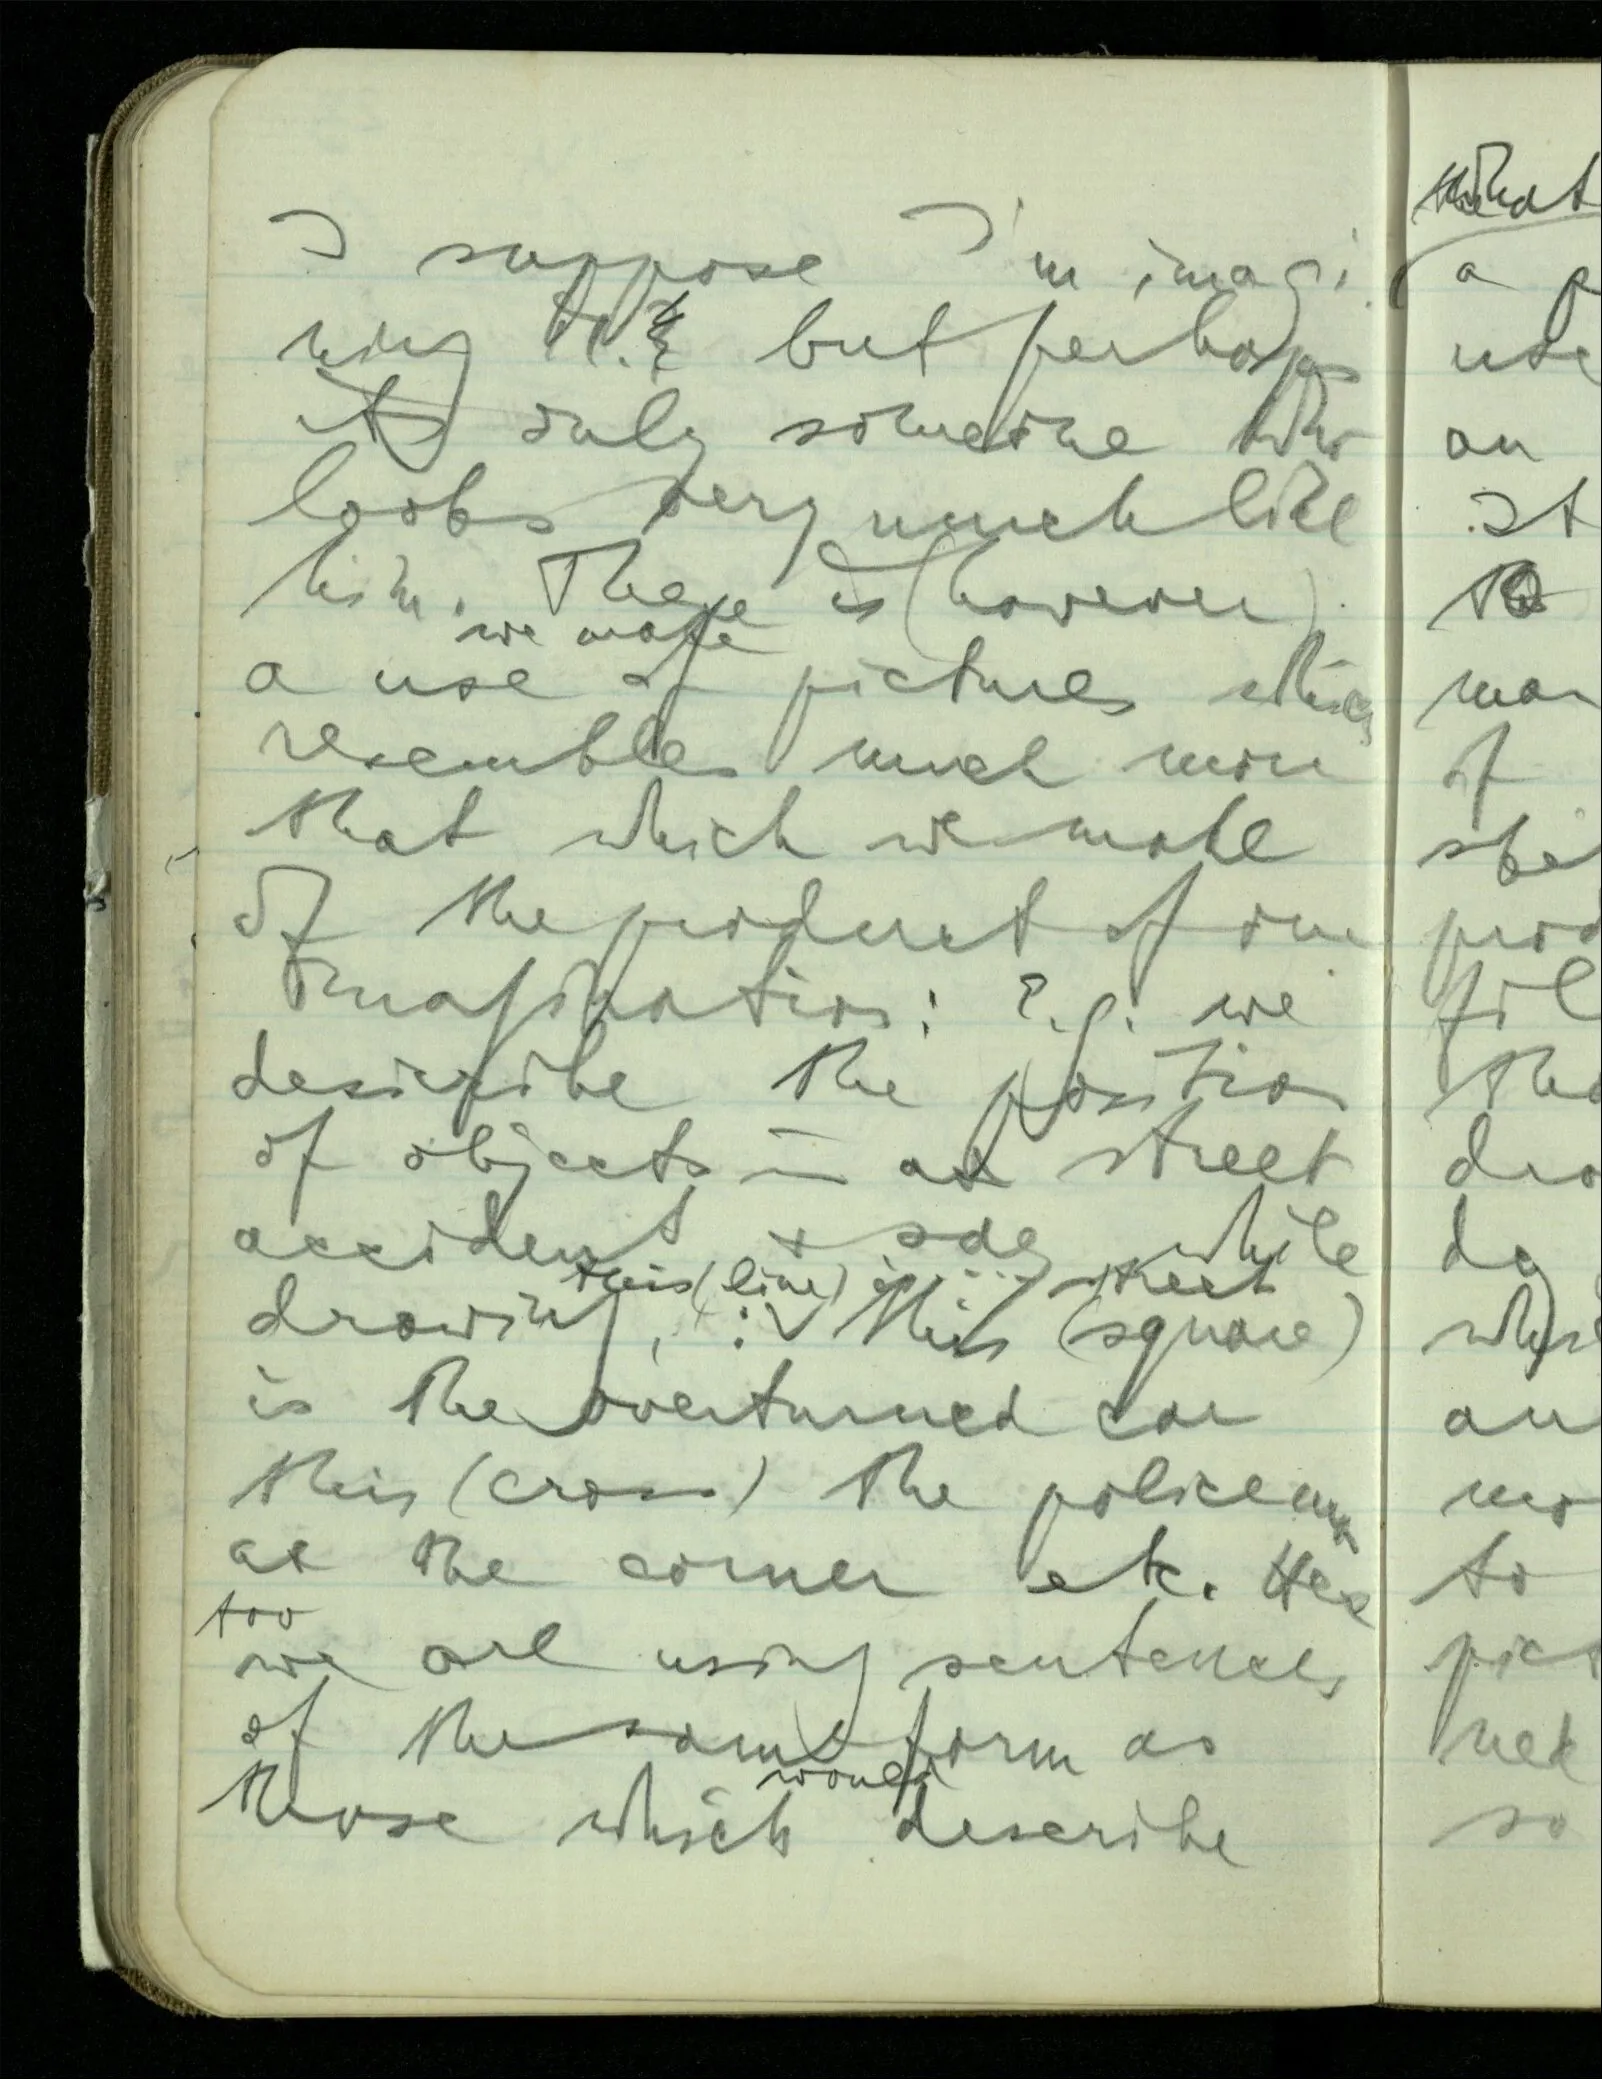 I suppose I'm imagi
ning H. but perhaps
it's only someone who
looks very much like
him. There is (however)
we make
a use of pictures which
resembles much more
that which we make
of the product of our
imagination: E.g. we
describe the position
of objects in a street
accident & say while
this (line) is ... street
drawing, : This (square)
is the overturned car
this (cross) the policeman
at the corner etc. Here
too
we are using sentences
of the same form as
would
those which describe
that
a
use
an
It
of
do
to
so